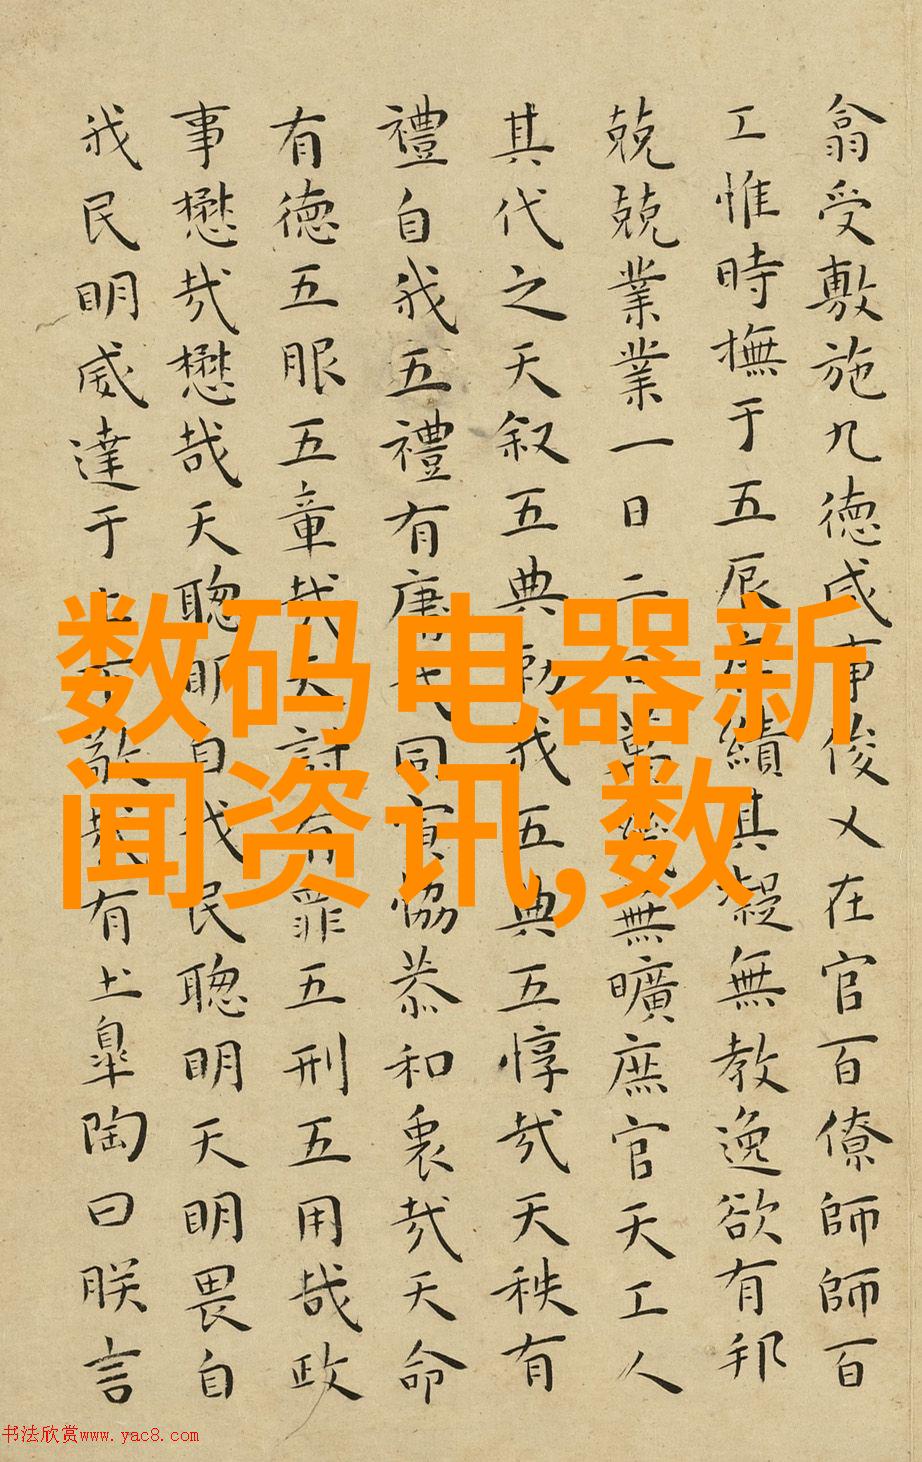 翕受敷施九徳咸事俊乂在官百僚師師百
工惟時撫于五辰庶績其凝無教逸欲有邦
兢兢業業一日二日萬幾無曠庶官天工人
其代之天叙五典勑我五典五惇哉天秩有
禮自我五禮有庸哉同寅恊恭和衷哉天命
有徳五服五章哉天討有罪五刑五用哉政
事懋哉懋哉天聰明自我民聰明天明畏自
我民明威達于上下敬哉有土皐陶曰朕言
数码电器新
闻资讯,数
书法欣赏www.yac8.com